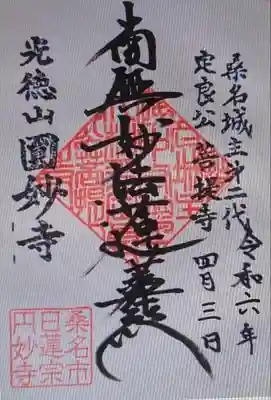 令和六年
四月三日
桑名城主第二代
定良公 菩提寺
南無妙法蓮華経
光德山圓妙寺
桑名市
日蓮宗
円妙寺